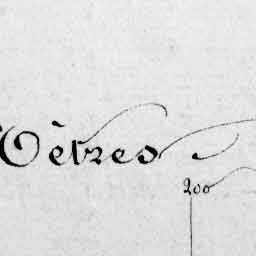 Mètres
200